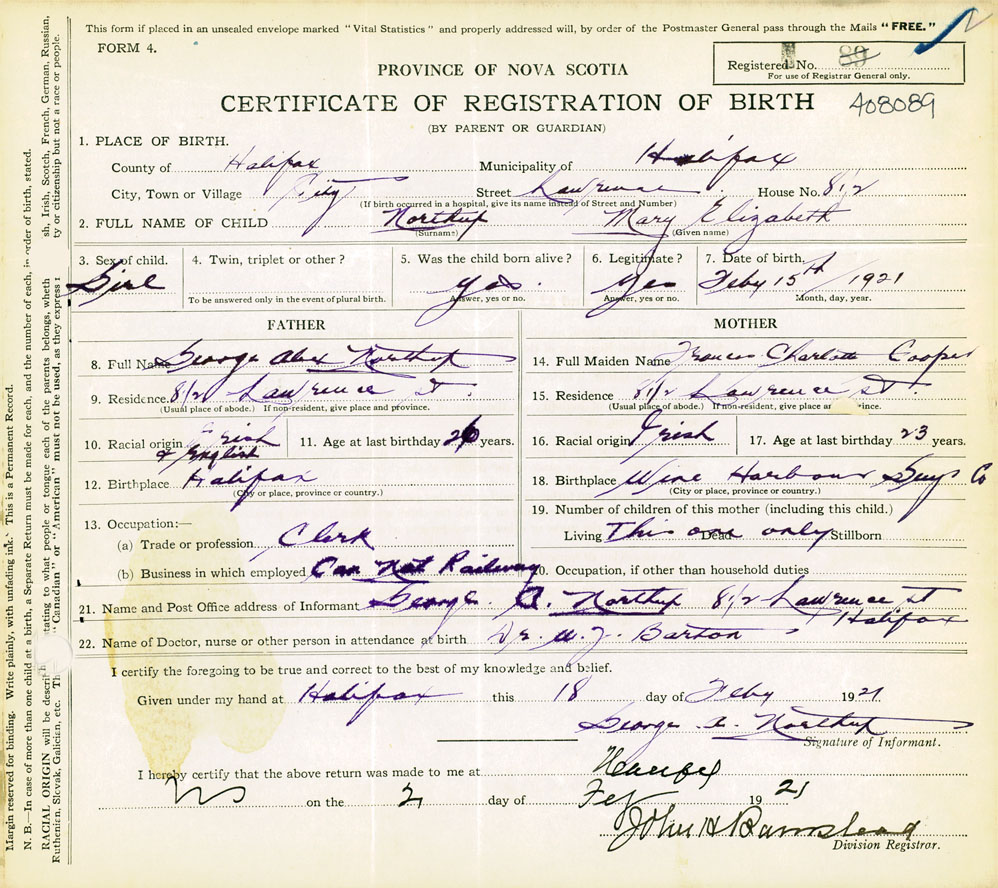 This form if placed in an unsealed envelope marked "Vital Statistics" and properly addressed will, by order of the Postmaster General pass through the Mails "FREE."
FORM 4.
Registered No. 89
For use of Registrar General only.
PROVINCE OF NOVA SCOTIA
CERTIFICATE OF REGISTRATION OF BIRTH 408089
(BY PARENT OR GUARDIAN)
1. PLACE OF BIRTH.
County of Halifax Municipality of Halifax
City, Town or Village City Street Lawrence House No. 8 1/2
(If birth occurred in a hospital, give its name instead of Street and Number)
2. FULL NAME OF CHILD Northup Mary Elizabeth
(Surname) (Given name)
3. Sex of child. 4. Twin, triplet or other? 5. Was the child born alive? 6. Legitimate? 7. Date of birth.
Girl yes. Yes Feby 15th 1921
To be answered only in the event of plural birth. Answer, yes or no. Answer, yes or no. Month, day, year.
FATHER
8. Full Name George Alex Northup
9. Residence. 8 1/2 Lawrence St.
(Usual place of abode.) If non-resident, give place and province.
10. Racial origin Irish & English 11. Age at last birthday 26 years.
12. Birthplace Halifax
(City or place, province or country.)
13. Occupation:—
(a) Trade or profession Clerk
(b) Business in which employed Can Nat Railway
MOTHER
14. Full Maiden Name Frances Charlotte Cooper
15. Residence 8 1/2 Lawrence St.
(Usual place of abode.) If non-resident, give place ince.
16. Racial origin Irish 17. Age at last birthday 23 years.
18. Birthplace Wine Harbour Guys Co
(City or place, province or country.)
19. Number of children of this mother (including this child.)
Living This one only Dead Stillborn
20. Occupation, if other than household duties
21. Name and Post Office address of Informant George A. Northup 8 1/2 Lawrence St
Halifax
22. Name of Doctor, nurse or other person in attendance at birth Dr. W. J. Barton
I certify the foregoing to be true and correct to the best of my knowledge and belief.
Given under my hand at Halifax this 18 day of Feby 1921
George A. Northup
Signature of Informant.
I hereby certify that the above return was made to me at
NS on the 2 day of Feb 1921
John H Barnstead
Division Registrar.
Margin reserved for binding. Write plainly, with unfading ink. This is a Permanent Record.
N. B.—In case of more than one child at a birth, a Separate Return must be made for each, and the number of each, in order of birth, stated.
RACIAL ORIGIN will be descri stating to what people or tongue each of the parents belongs, wheth sh, Irish, Scotch, French, German, Russian,
Ruthenian, Slovak, Galician, etc. Th "Canadian" or "American" must not be used, as they express ty or citizenship but not a race or people.